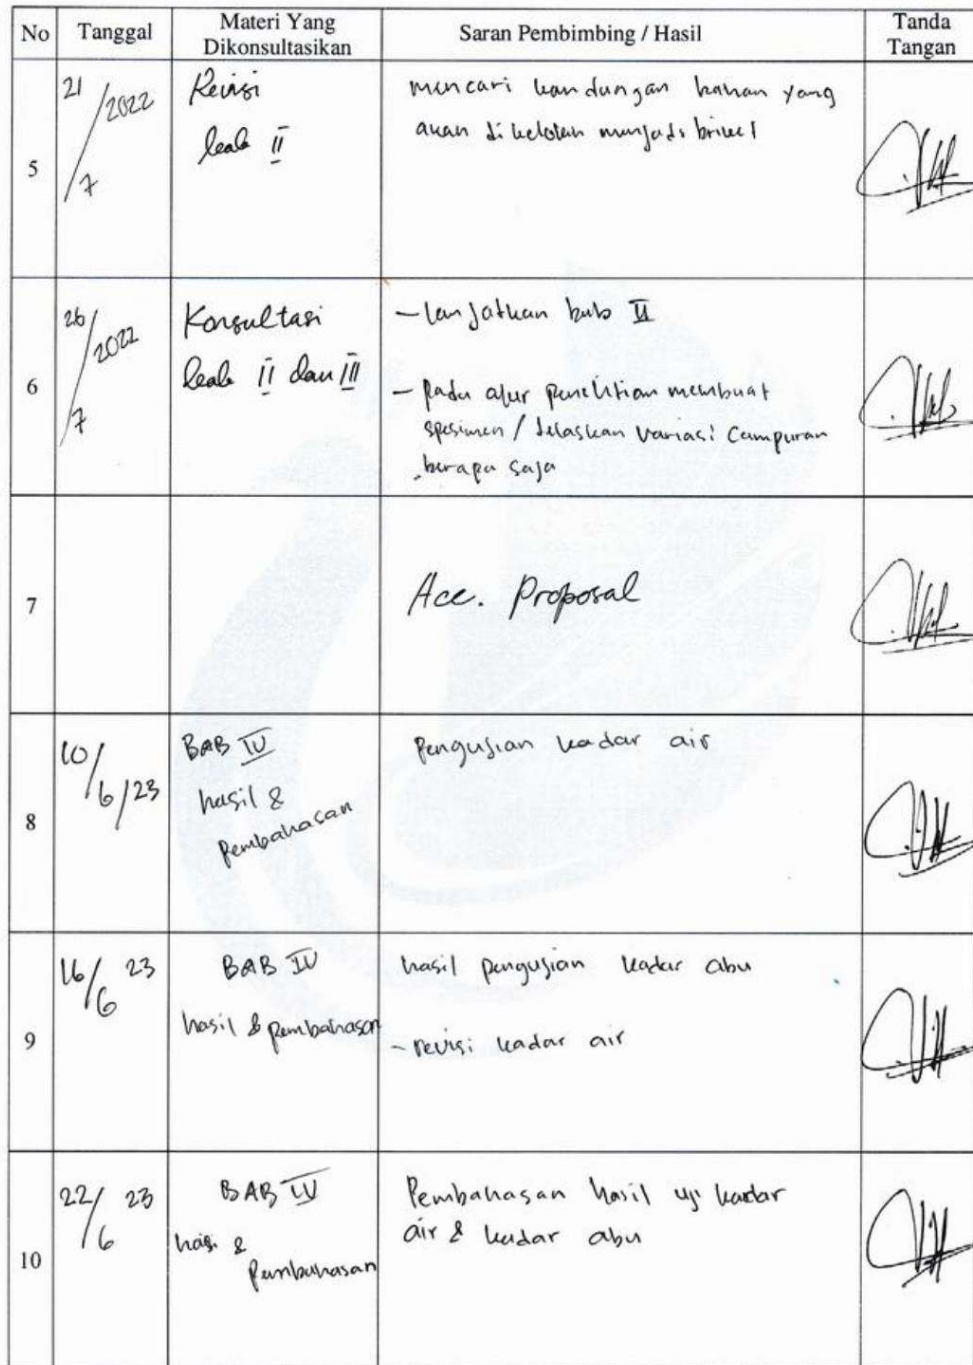 No Tanggal Materi Yang Dikonsultasikan Saran Pembimbing / Hasil Tanda Tangan
5
21/7/2022
Revisi
bab II
mencari kandungan bahan yang
akan di kelolah menjadi briket
6
26/7/2022
Konsultasi
bab II dan III
- lanjutkan bab II
- pada alur penelitian membuat
spesimen / jelaskan variasi campuran
berapa saja
7
Acc. Proposal
8
10/6/23
BAB IV
hasil &
Pembahasan
Pengujian kadar air
9
16/6 23
BAB IV
hasil & pembahasan
hasil pengujian kadar abu
- revisi kadar air
10
22/6 23
BAB IV
hasi &
Pembahasan
Pembahasan hasil uji kadar
air & kadar abu